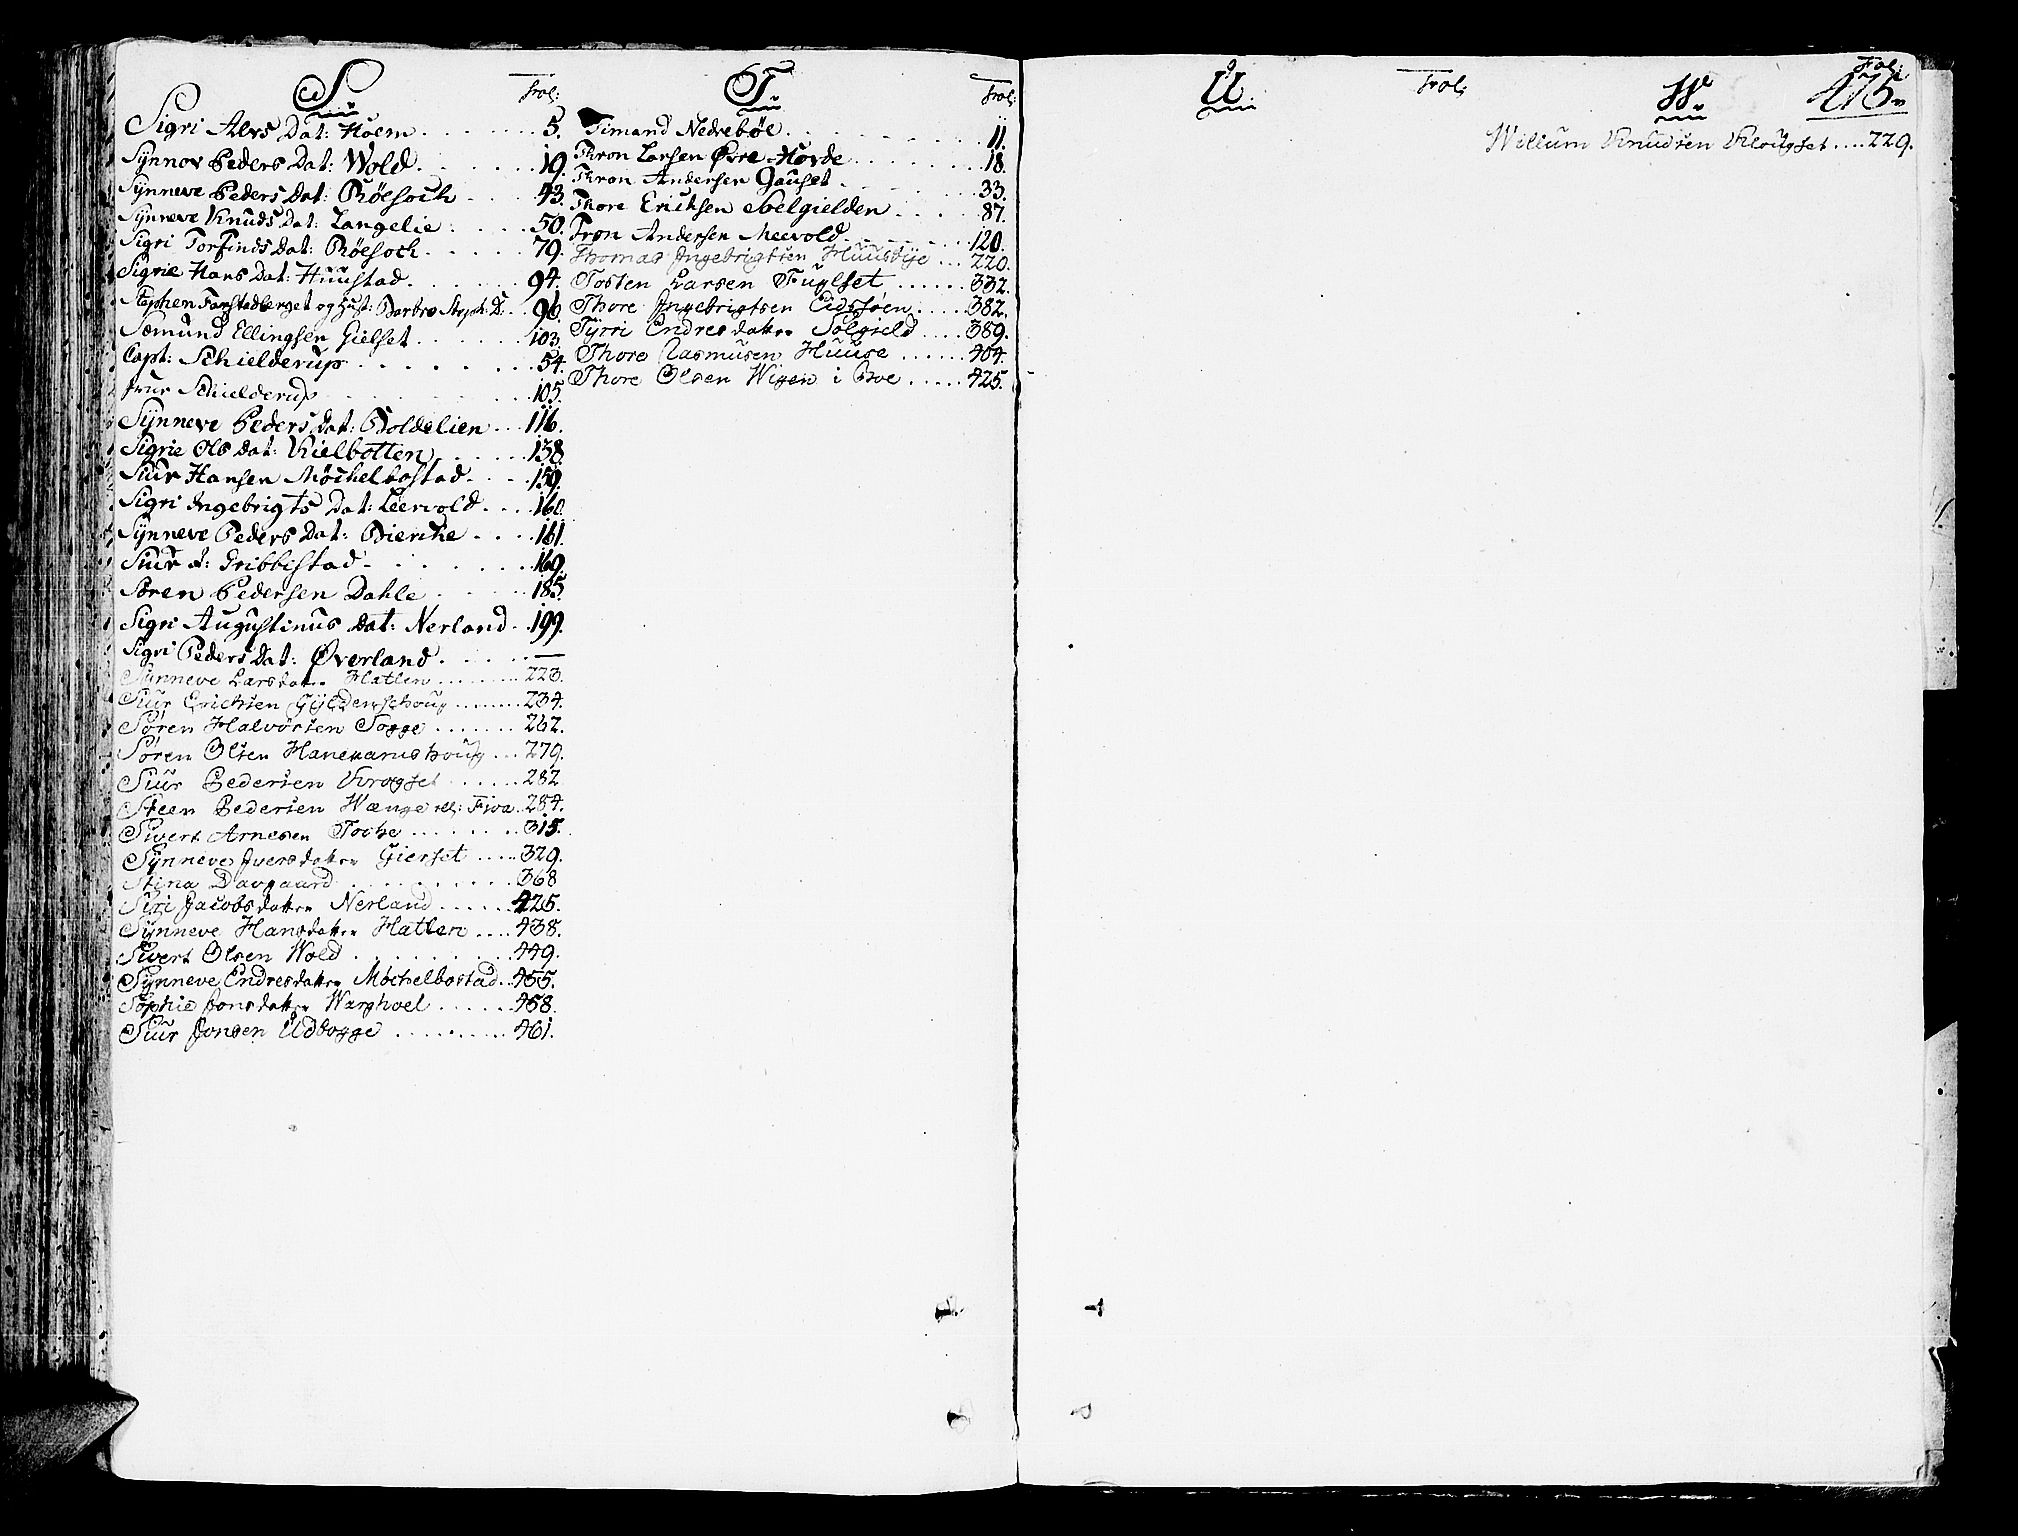 S
Fol:
Sigri Alvs Dat: Hoem . . . 5.
Synnov Peders Dat: Wold . . . 19.
Synneve Peders Dat: Röesoch . . . 43.
Synneve Knuds Dat: Langelie . . . 50.
Sigri Torfinds Dat: Röesoch . . . 79.
Sigrie Hans Dat: Huustad . . . 94.
Stephen Farstadberget og Hust: Barbro Steph: D: . . 96.
Sæmund Ellingsen Gielset . . . 103.
Capt: Schielderup . . . 54.
Frue Schielderup . . . 105.
Synneve Peders Dat: Boldelien . . . 116.
Sigrie Ols Dat: Kielbotten . . . 138.
Siur Hansen Möchelbostad . . . 159.
Sigri Ingebrigts Dat: Leervold . . . 160.
Synneve Peders Dat: Biercke . . . 161.
Siur Gribbestad . . . 169.
Søren Pedersen Dahle . . . 185.
Sigri Augustinus Dat: Nerland . . 199.
Sigri Peders Dat: Øverland . . . —
Synneve Larsdatter Hatlen . . . 223.
Siur Erichsen Gyldenschoug . . . 234.
Søren Halvorsen Sogge . . . 262.
Søren Olsen Hanekamshoug . . . 279.
Siur Pedersen Krogset . . . 282
Steen Pedersen Wænge ell: Fiva . . 284.
Sivert Arnesen Toche . . . 315.
Synneve Iversdatter Gierset . . . 329.
Stina Davgaard . . . 368
Siri Jacobsdatter Nerland . . . 425.
Synneve Hansdatter Hatlen . . . 438.
Sivert Olsen Wold . . . 449.
Synneve Endresdatter Möchelbostad . . 455.
Sophie Jonsdatter Warghoel . . . 458.
Siur Jonsen Udbogge . . . 461.
T
Fol:
Timand Nedrebøe . . . 11.
Thron Larsen Øvre Hovde . . . 18.
Thron Andersen Gauset . . . 33.
Thore Erichsen Soelgielden . . . 87.
Tron Andersen Meevold . . . 120.
Thomas Ingebrigtsen Huusbye . . . 220.
Tosten Larsen Fuglset . . . 332.
Thore Ingebrigtsen Eidssøen . . . 382.
Tyrri Endresdatter Solgield . . . 389.
Thore Rasmusen Huuse . . . 404.
Thore Olsen Wigen i Boe . . . 425.
U
Fol:
W
Fol:
475
Willum Knudsen Klougset . . . . 229.